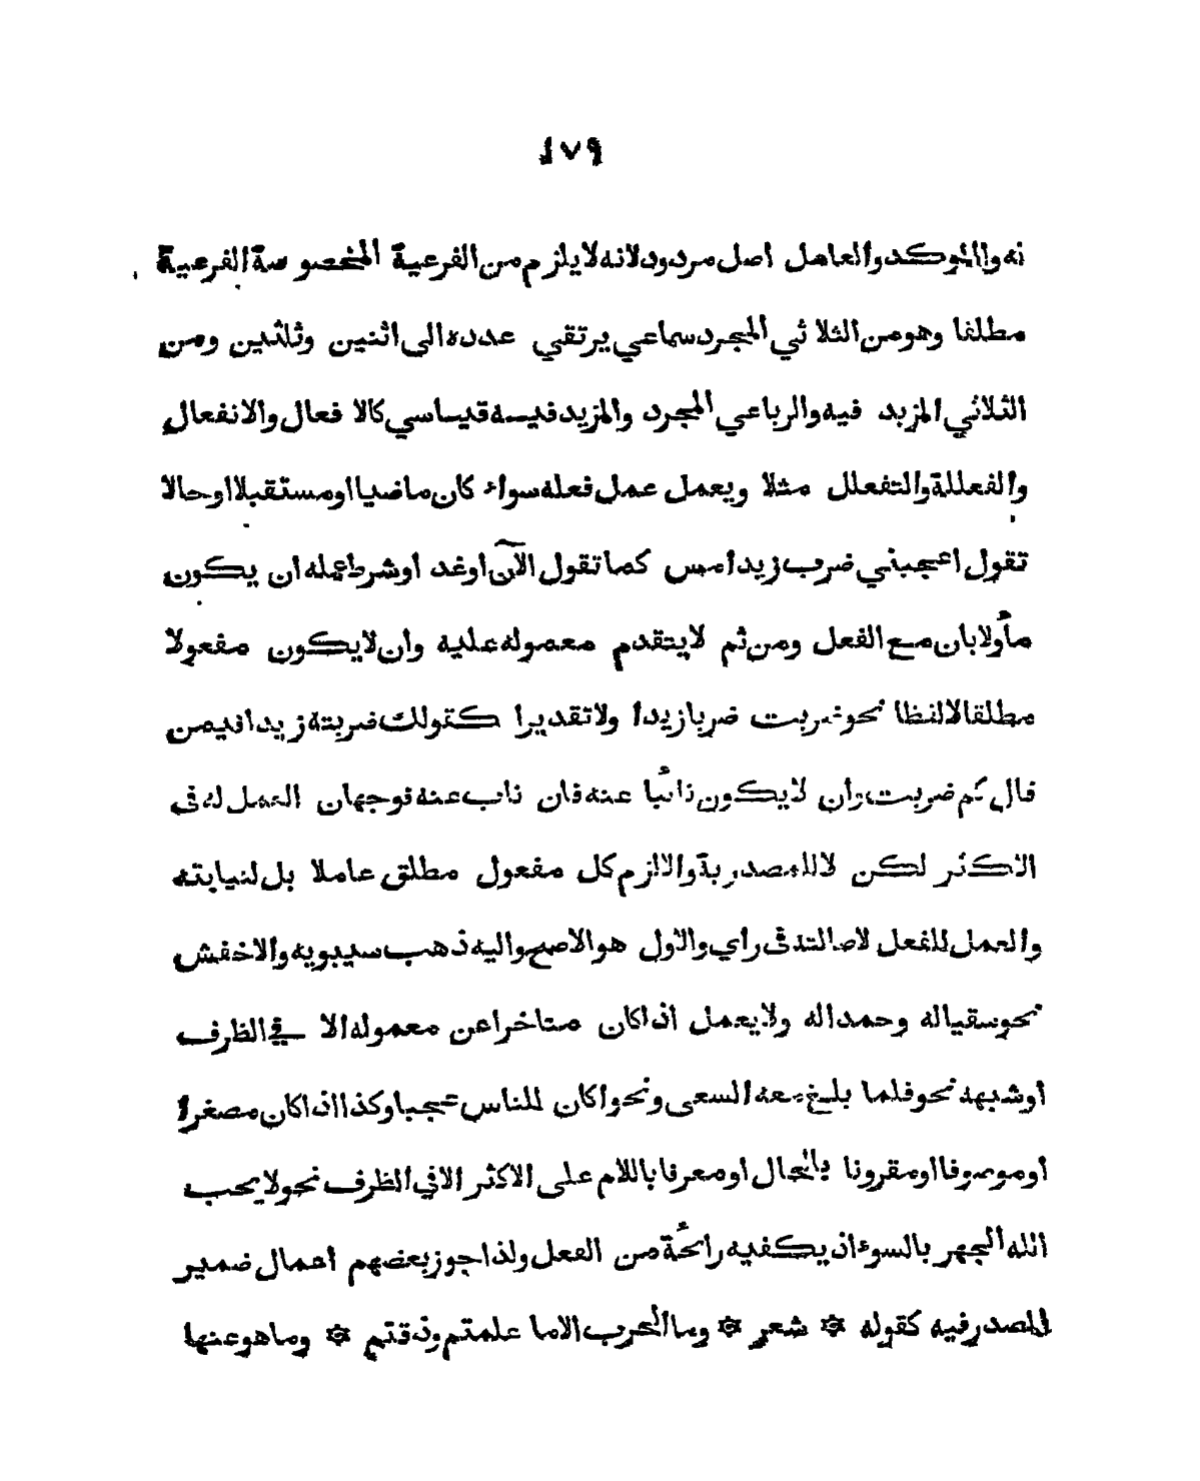 ١٧٩
نه والموكد والعامل اصل مردود لانه لا يلزم من الفرعية المخصوصة الفرعية
مطلقا وهو من الثلاثي المجرد سماعي يرتقي عدده الى اثنين وثلثين ومن
الثلاثي المزيد فيه والرباعي المجرد والمزيد فيه قياسي كالا فعال والانفعال
والفعللة والتفعلل مثلا ويعمل عمل فعله سواء كان ماضيا او مستقبلا او حالا
تقول اعجبني ضرب زيد امس كما تقول الآن او غد او شرط عمله ان يكون
مأولا بان مع الفعل ومن ثم لا يتقدم معموله عليه وان لا يكون مفعولا
مطلقا لا لفظا نحو ضربت ضربا زيدا ولا تقديرا كقولك ضربته زيدا فيمن
قال كم ضربت وان لا يكون نائبا عنه فان ناب عنه فوجهان العمل له في
الاكثر لكن لا للمصدرية والا لزم كل مفعول مطلق عاملا بل لنيابته
والعمل للفعل لاصالته في راي والاول هو الاصح واليه ذهب سيبويه والاخفش
نحو سقيا له وحمدا له ولا يعمل اذا كان متاخرا عن معموله الا في الظرف
او شبهه نحو فلما بلغ معه السعى ونحو اكان للناس عجبا وكذا اذا كان مصغرا
او موصوفا او مقرونا بالحال او معرفا باللام على الاكثر الا في الظرف نحو لا يحب
الله الجهر بالسوء اذ يكفيه رائحة من الفعل ولذا جوز بعضهم اعمال ضمير
المصدر فيه كقوله ۞ شعر ۞ وما الحرب الا ما علمتم وذقتم ۞ وما هو عنها